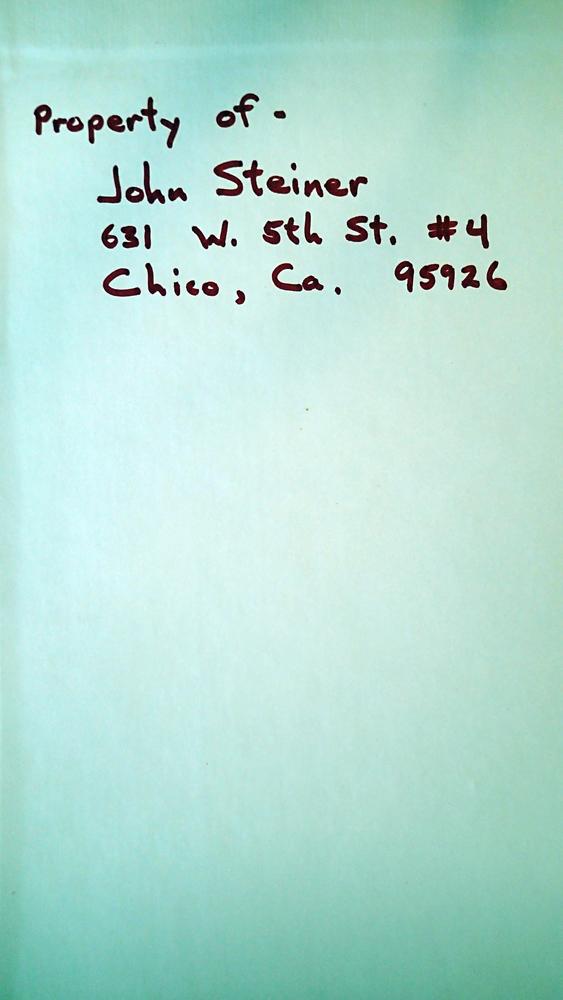 Property of -
John Steiner
631 W. 5th St. #4
Chico, Ca. 95926